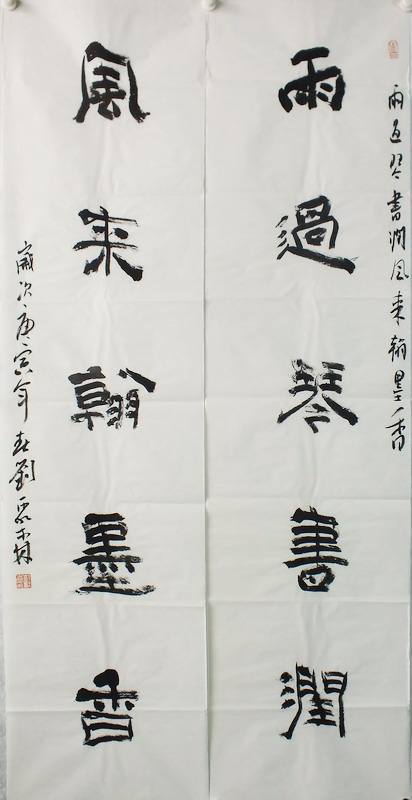 雨過琴書潤風來翰墨香
雨過琴書潤
風來翰墨香
歲次庚寅年春劉